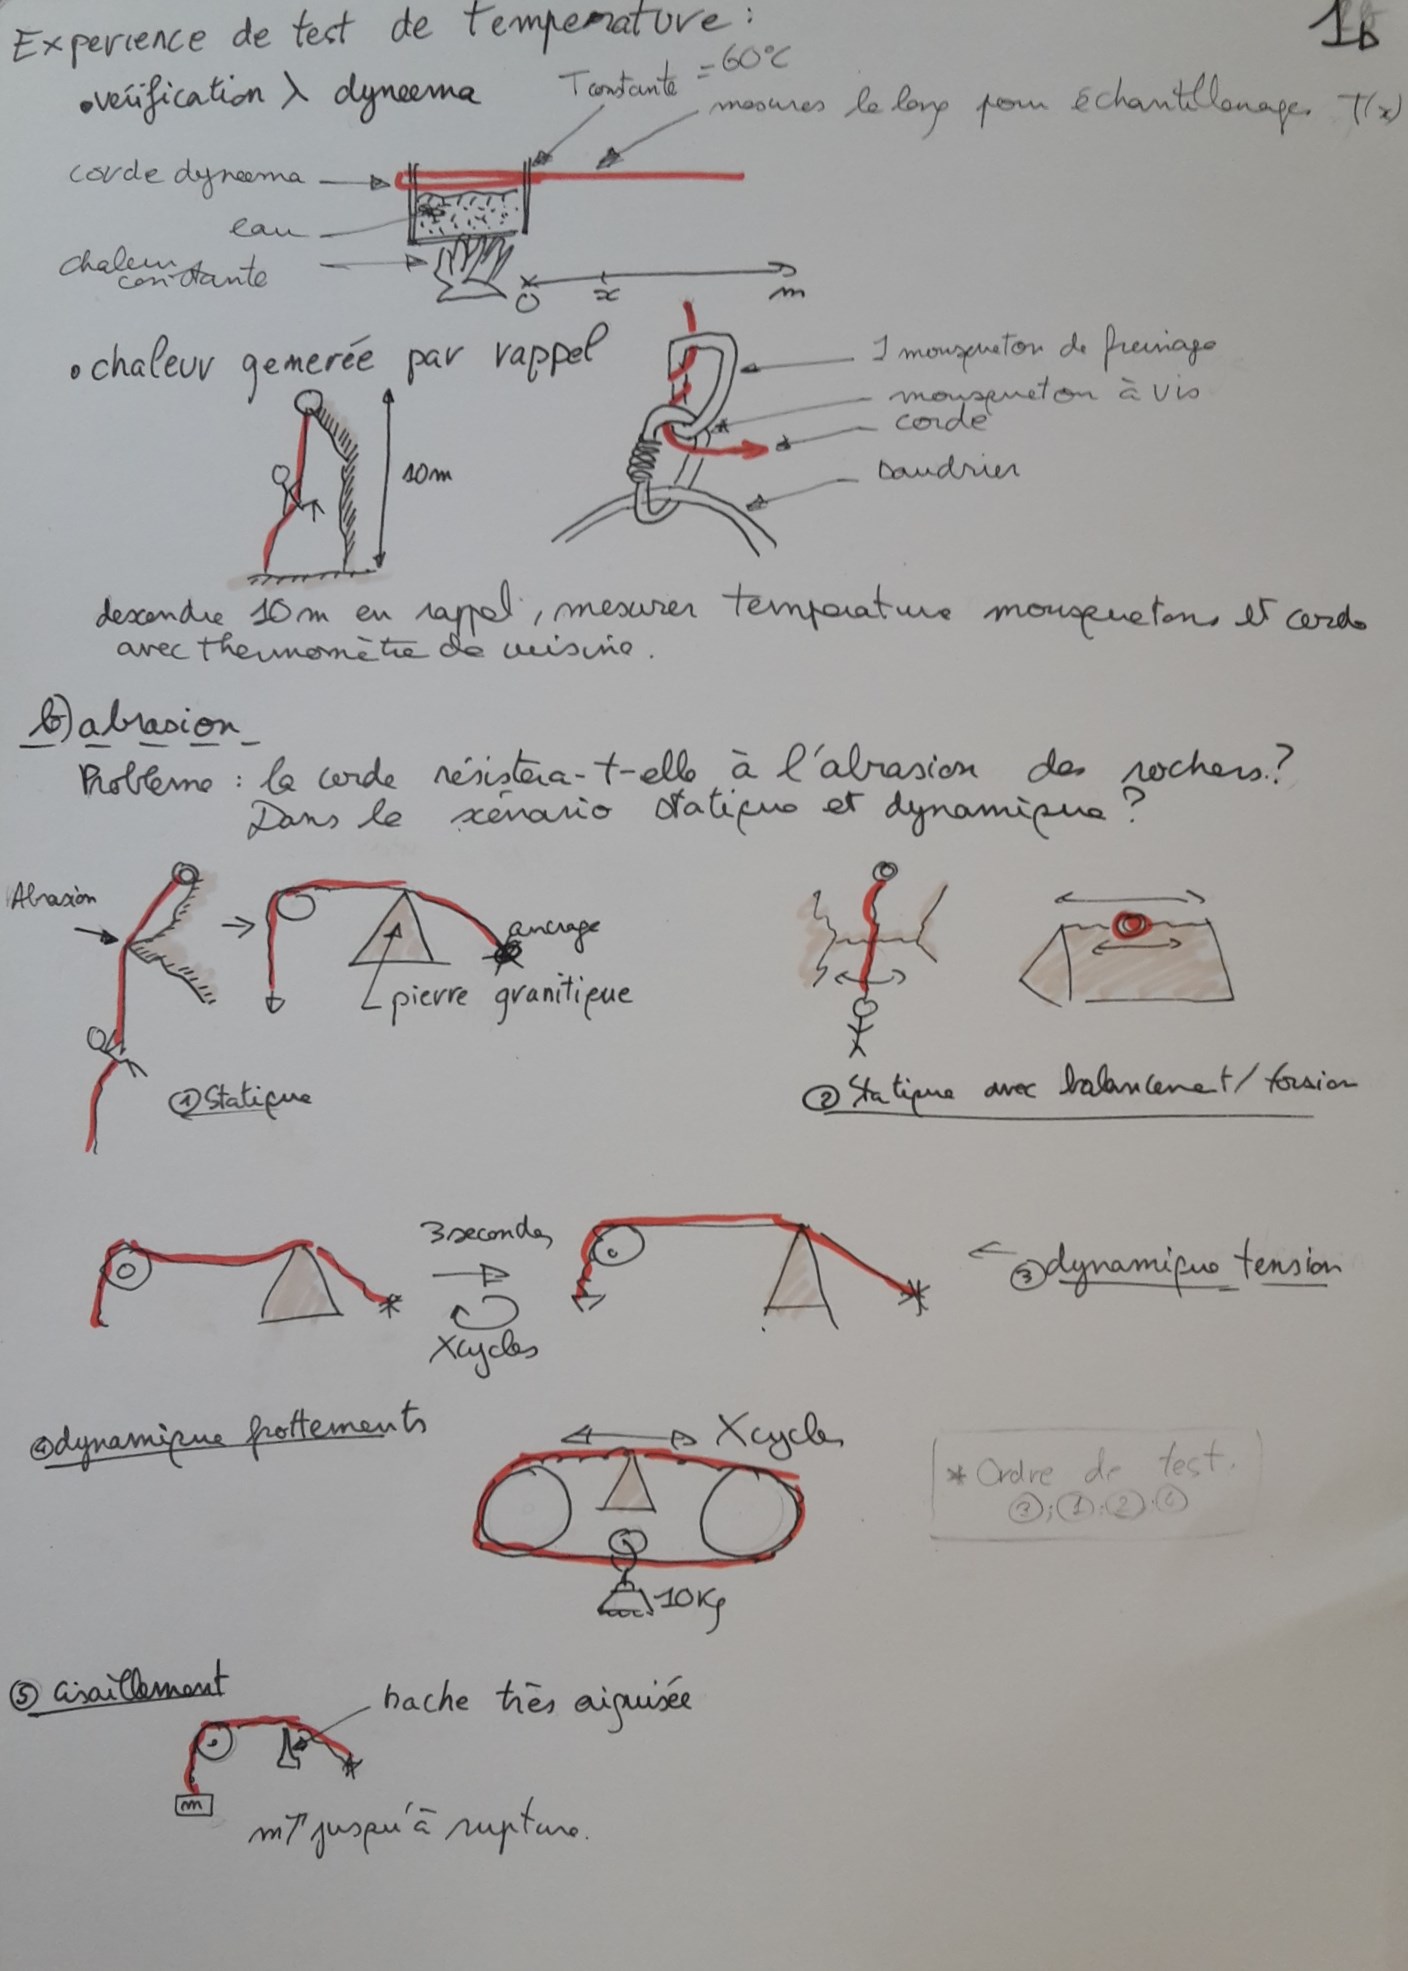 Experience de test de temperature :
1b
• vérification λ dyneema
T constante = 60°C
mesures le long pour échantillonages T(x)
corde dyneema
eau
chaleur constante
0 x m
• chaleur generée par rappel
10m
1 mousqueton de freinage
mousqueton à vis
corde
baudrier
descendre 10m en rappel, mesurer temperature mousquetons et corde
avec thermomètre de cuisine.
b) abrasion
Problème : la corde résistera-t-elle à l'abrasion des rochers ?
Dans le scénario statique et dynamique ?
Abrasion
ancrage
pierre granitique
① Statique
② Statique avec balancement/torsion
3 secondes
X cycles
③ dynamique tension
④ dynamique frottements
X cycles
* Ordre de test.
③; ①; ②;
10Kg
⑤ cisaillement
hache très aiguisée
m
m↑ jusqu'à rupture.